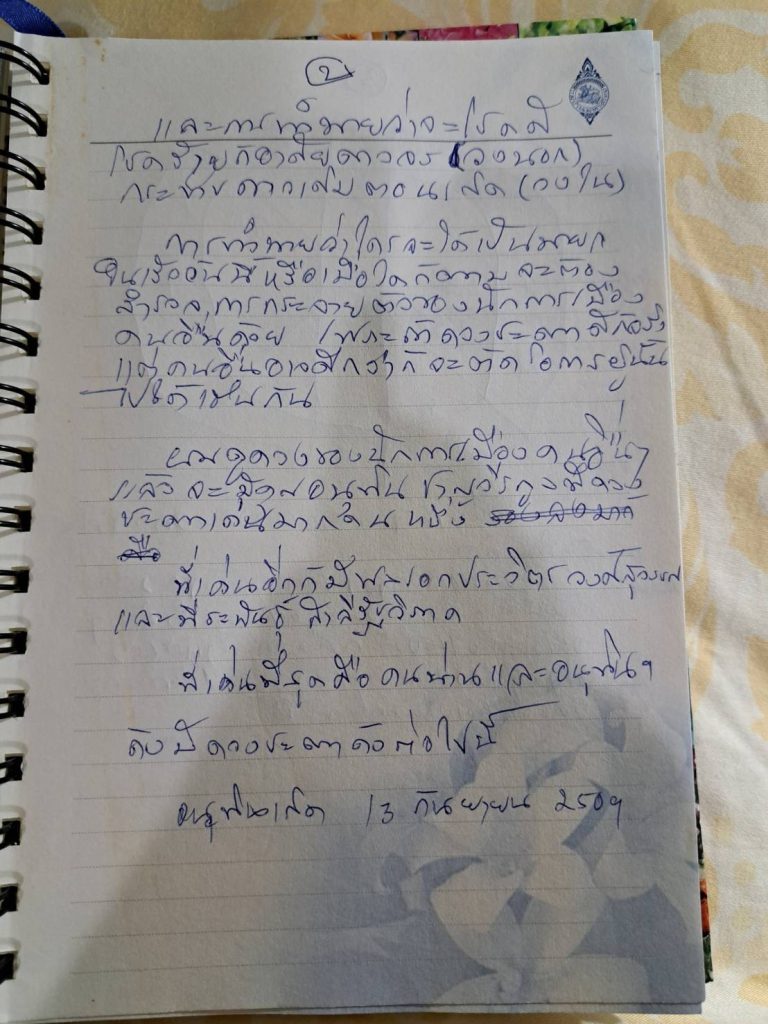 ๒
และการทำนายว่าจะโชคดี
โชคร้ายก็อาศัยดาวจร (วงนอก)
กระทบดาวเดิมตอนเกิด (วงใน)
การทำนายว่าใครจะได้เป็นนายก
ในเร็ววันนี้หรือเมื่อใดก็ตาม จะต้อง
สำรวจ การกระจายตัวของนักการเมือง
คนอื่นด้วย เพราะถ้าดวงชะตาดีก็จริง
แต่คนอื่นอาจดีกว่าก็จะตัดโอกาสผู้นั้น
ไปได้เช่นกัน
ผมดูดวงของนักการเมืองคนอื่นๆ
แล้วจะมีคุณอนุทิน ชาญวีรกูลที่ดวง
ชะตาเด่นมากคนหนึ่ง
ที่เด่นอีกก็มีพลเอกประวิตร วงษ์สุวรรณ
และพีระพันธุ์ สาลีรัฐวิภาค
ที่เด่นที่สุดคือ คนน่าน และอนุทินฯ
ดังมีดวงชะตาดังต่อไปนี้
อนุทินเกิด 13 กันยายน 2509